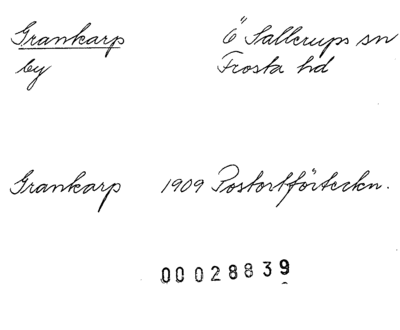 Grankarp Ö Sallerups sn
by Frosta hd
Grankarp 1909 Postortförteckn.
00028839